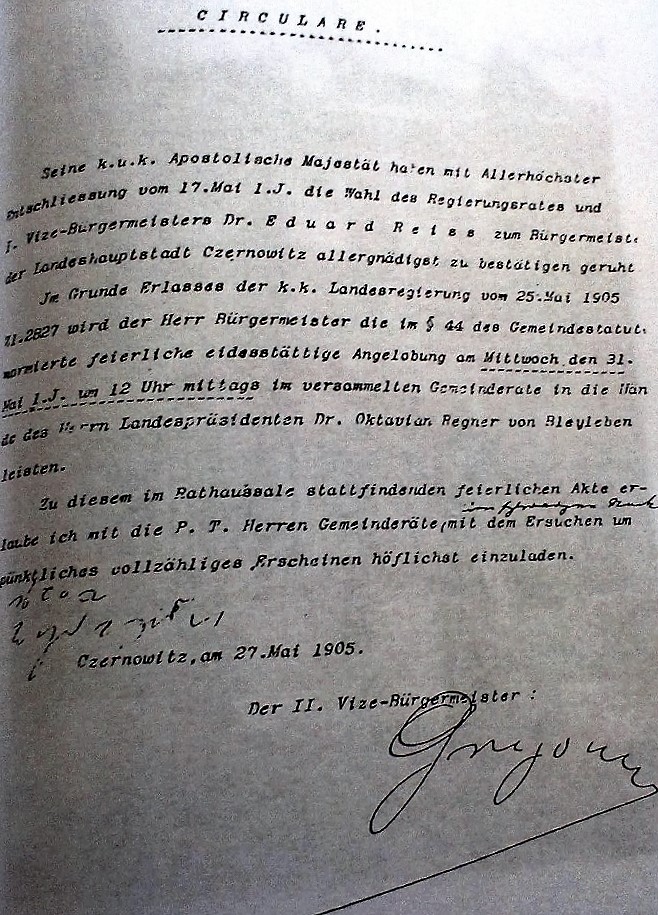 CIRCULARE.
Seine k.u.k. Apostolische Majestät haben mit Allerhöchster
Entschliessung vom 17.Mai l.J. die Wahl des Regierungsrates und
I. Vize-Bürgermeisters Dr. Eduard Reiss zum Bürgermeist
der Landeshauptstadt Czernowitz allergnädigst zu bestätigen geruht
Im Grunde Erlasses der k.k. Landesregierung vom 25.Mai 1905
Zl.2827 wird der Herr Bürgermeister die im § 44 des Gemeindestatut
normierte feierliche eidesstättige Angelobung am Mittwoch den 31.
Mai l.J. um 12 Uhr mittags im versammelten Gemeinderate in die Hän
de des Herrn Landespräsidenten Dr. Oktavian Regner von Bleyleben
leisten.
Zu diesem im Rathaussale stattfindenden feierlichen Akte er-
laube ich mit die P. T. Herren Gemeinderäte, mit dem Ersuchen um
pünktliches vollzähliges Erscheinen höflichst einzuladen.
Czernowitz, am 27.Mai 1905.
Der II. Vize-Bürgermeister :